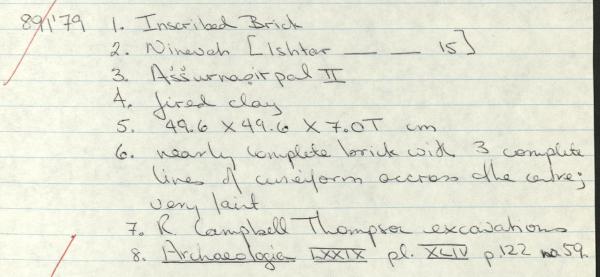 89/'79 1. Inscribed Brick
2. Nineveh [Ishtar — — 15]
3. Aššurnaṣirpal II
4. fired clay
5. 49.6 x 49.6 x 7.0T cm
6. nearly complete brick with 3 complete
lines of cuneiform accross the centre;
very faint
7. R. Campbell Thompson excavations
8. Archaeologia LXXIX pl. XLIV p.122 no 59.